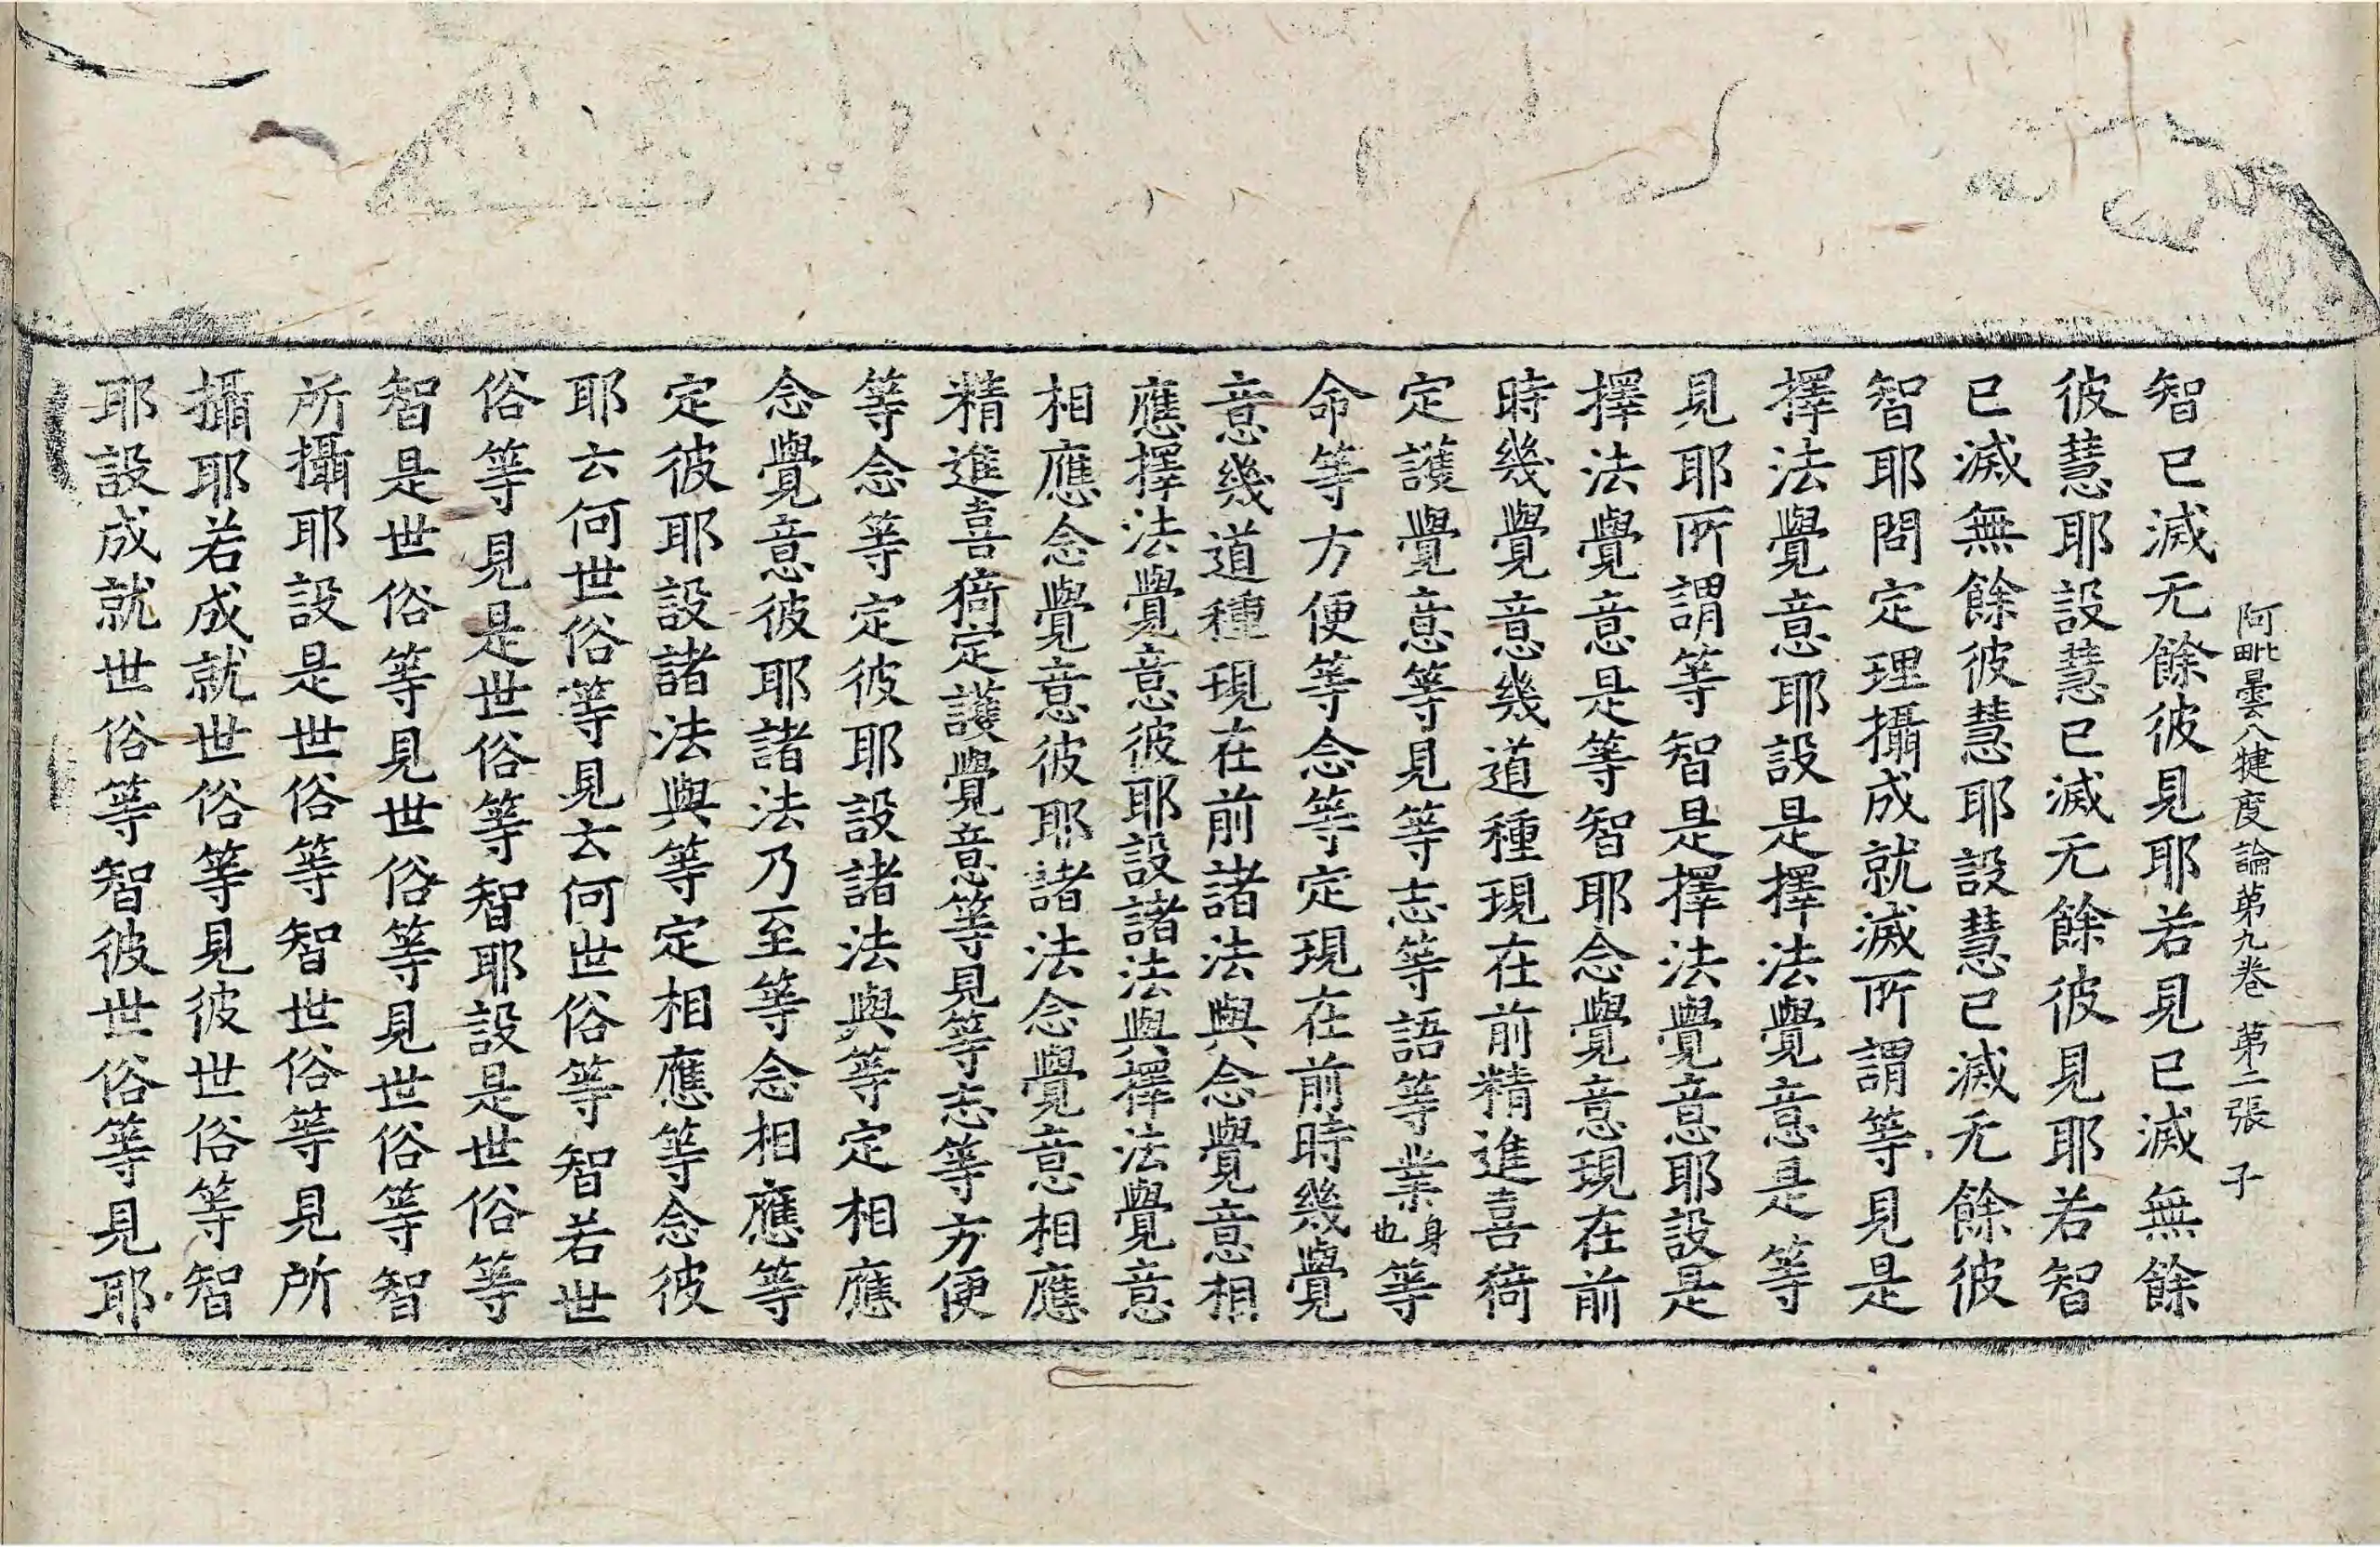 阿毗曇八揵度論第九卷 第二張 子
智已滅无餘彼見耶若見已滅無餘
彼慧耶設慧已滅无餘彼見耶若智
已滅無餘彼慧耶設慧已滅无餘彼
智耶問定理攝成就滅所謂等見是
擇法覺意耶設是擇法覺意是等
見耶所謂等智是擇法覺意耶設是
擇法覺意是等智耶念覺意現在前
時幾覺意幾道種現在前精進喜猗
定護覺意等見等志等語等業身也等
命等方便等念等定現在前時幾覺
意幾道種現在前諸法與念覺意相
應擇法覺意彼耶設諸法與擇法覺意
相應念覺意彼耶諸法念覺意相應
精進喜猗定護覺意等見等志等方便
等念等定彼耶設諸法與等定相應
念覺意彼耶諸法乃至等念相應等
定彼耶設諸法與等定相應等念彼
耶云何世俗等見云何世俗等智若世
俗等見是世俗等智耶設是世俗等
智是世俗等見世俗等見世俗等智
所攝耶設是世俗等智世俗等見所
攝耶若成就世俗等見彼世俗等智
耶設成就世俗等智彼世俗等見耶